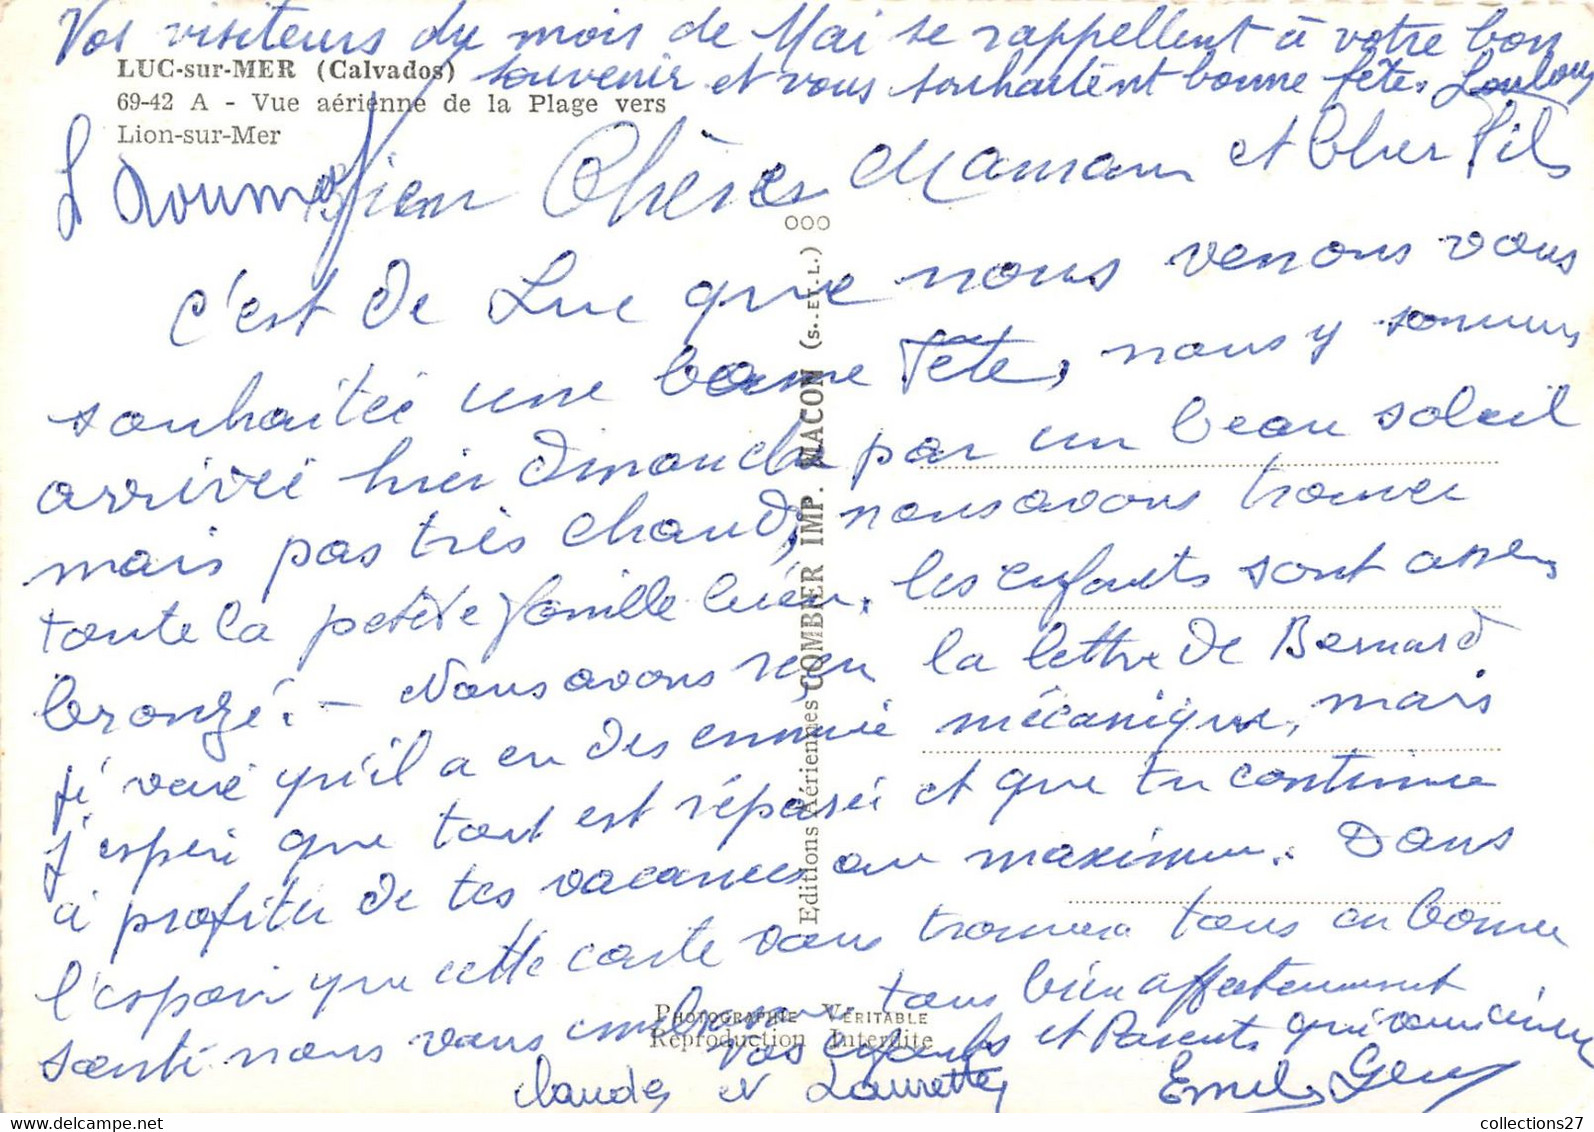 Vos visiteurs du mois de Mai se rappellent à votre bon
souvenir et vous souhaitent bonne fête. Loulou
LUC-sur-MER (Calvados)
69-42 A - Vue aérienne de la Plage vers
Lion-sur-Mer
Bien Chères Maman et Cher Fils
c'est de Luc que nous venons vous
souhaitéi une bonne Fête, nous y sommes
arrivéi hier dimanche par un beau soleil
mais pas très chaud, nous avons trouvéi
toute la petite famille bién. les enfants sont assez
bronzé. - Nous avons reçu la lettre de Bernard
qu'il a eu des ennuie mécanique, mais
j'espéri que tout est réparéi et que tu continue
à profiter de tes vacances au maximum. Dans
l'espoir que cette carte vous trouvera tous en bonne
santé nous vous embrassons tous bién affectueusement
vos enfants et Parents qui vous aiment
Claude et Laurette
Emile
Editions Aériennes COMBIER IMP. MACON (S.-ET-L.) OOO
PHOTOGRAPHIE VÉRITABLE
Reproduction Interdite
collections27